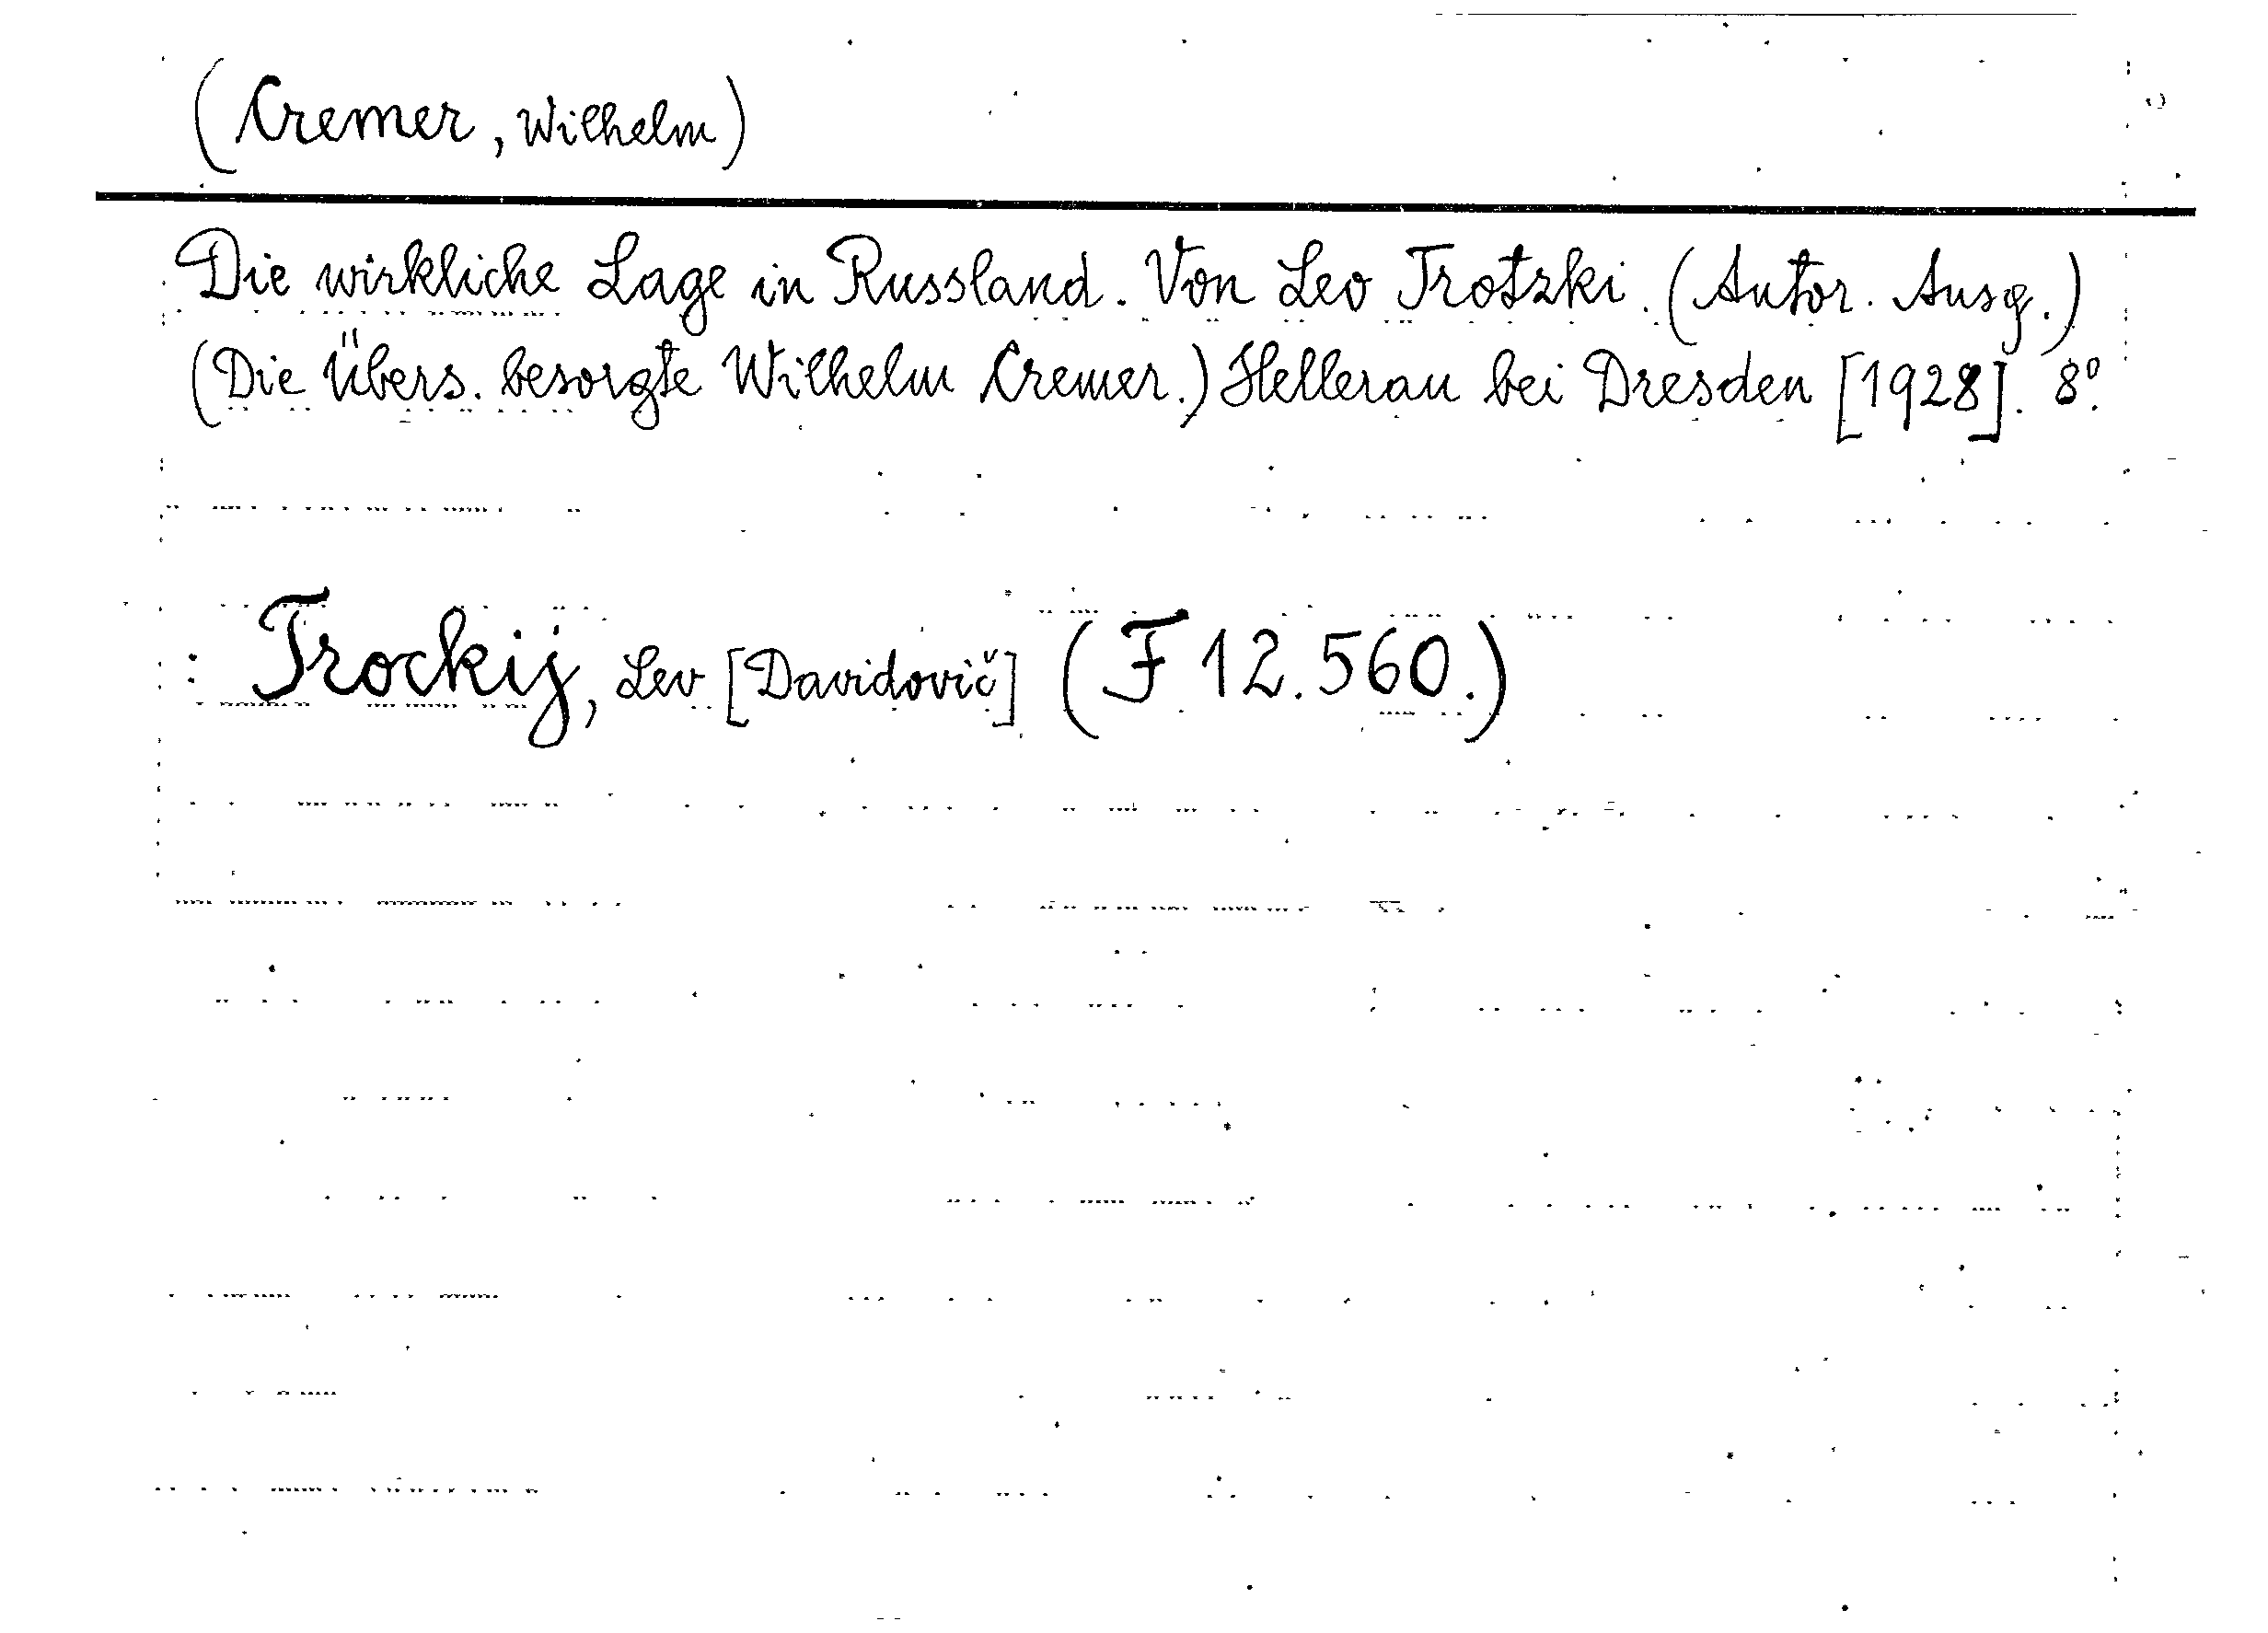 (Cremer, Wilhelm)
Die wirkliche Lage in Russland. Von Leo Trotzki. (Autor. Ausg.)
(Die Übers. besorgte Wilhelm Cremer.) Hellerau bei Dresden [1928]. 8°.
: Trockij, Lev [Davidovič] (F 12.560.)